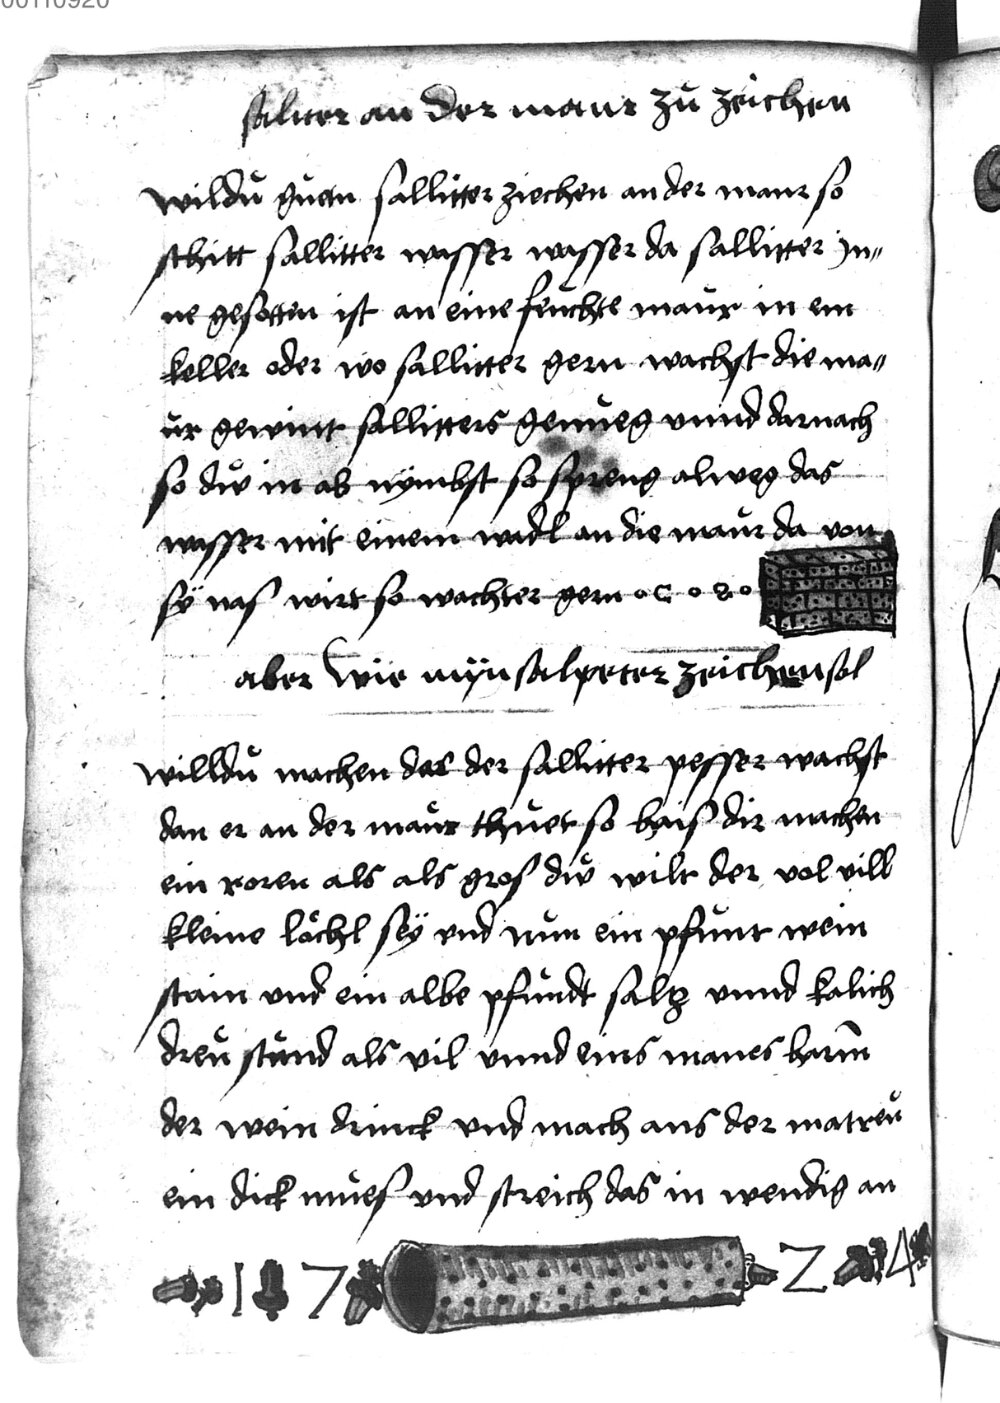 00110920
saliter an der maur zů zeichen
wildů gůetn sallitter ziechen an der maur so
schitt sallitter wasser wasser da sallitter jn„
ne gesotten ist an eine feůchte maůr in ein
keller oder wo sallitter gern wachst die ma„
ůr gewint sallitters genůeg vnnd darnach
so dw in ab nÿmbst so spreng alweg das
wasser mit einem wadl an die maůr da von
sÿ nas wirt so wachter gern
aber wie mÿn salpeter zeichen sol
willdů machen das der sallitter pesser wachst
dan er an der maůr thůet so hais dir machen
ein roren als als gros dw wilt der vol vill
kleine löchl seÿ vnd nům ein pfůnt wein
stain vnd ein albe pfůndt saltz vnnd kalich
dreů stůnd als vil vnnd eins manes harm
der wein drinck vnd mach aus der matreů
ein dick můes vnd streich das in wendig an
1 7 2 4